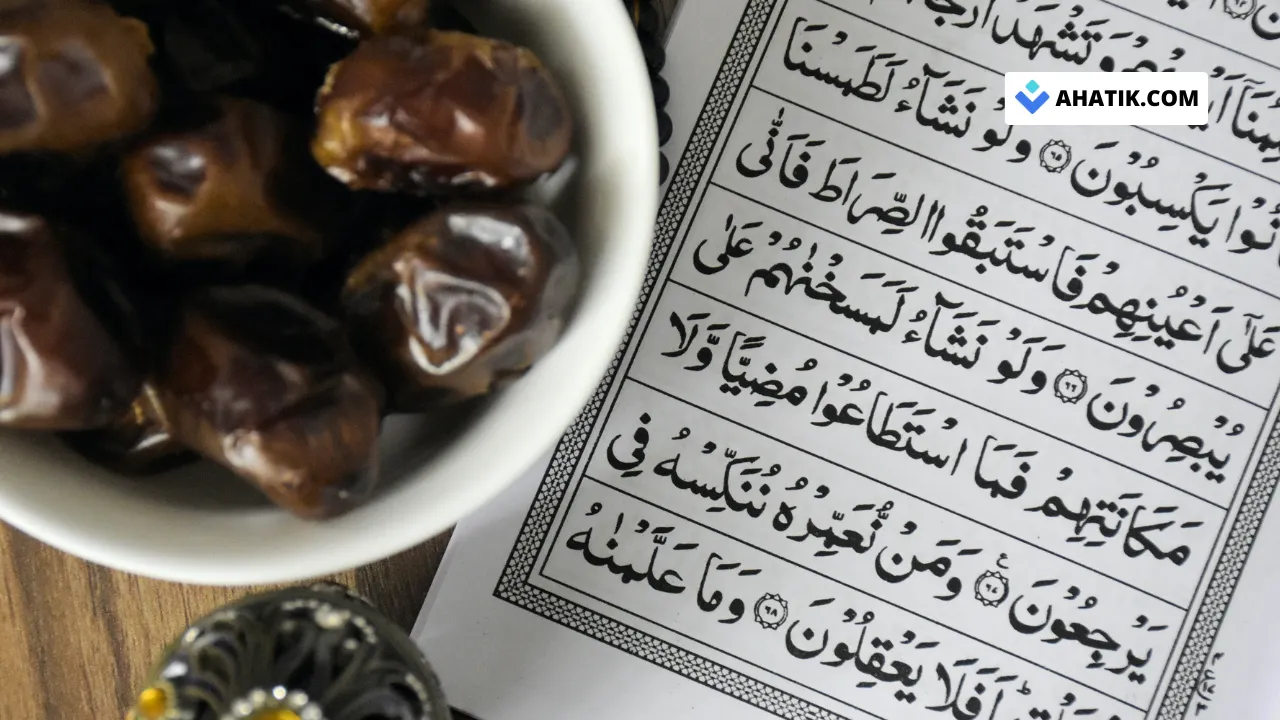 وَتَشْهَدُ اَرْجُ
AHATIK.COM
نُوْا يَكْسِبُوْنَ ﴿٦٥﴾ وَلَوْ نَشَآءُ لَطَمَسْنَا
عَلٰٓى اَعْيُنِهِمْ فَاسْتَبَقُوا الصِّرَاطَ فَاَنّٰى
يُبْصِرُوْنَ ﴿٦٦﴾ وَلَوْ نَشَآءُ لَمَسَخْنٰهُمْ عَلٰى
مَكَانَتِهِمْ فَمَا اسْتَطَاعُوْا مُضِيًّا وَّلَا
يَرْجِعُوْنَ ﴿٦٧﴾ وَمَنْ نُّعَمِّرْهُ نُنَكِّسْهُ فِى
اَفَلَا يَعْقِلُوْنَ ﴿٦٨﴾ وَمَا عَلَّمْنٰهُ